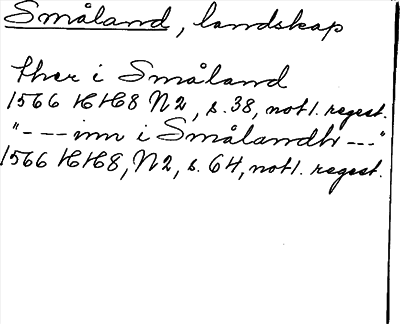 Småland, landskap
ther i Småland
1566 HH8 N2, s. 38, not 1. regest.
"---inn i Smålandh---"
1566 HH8, N2, s. 64, not 1. regest.